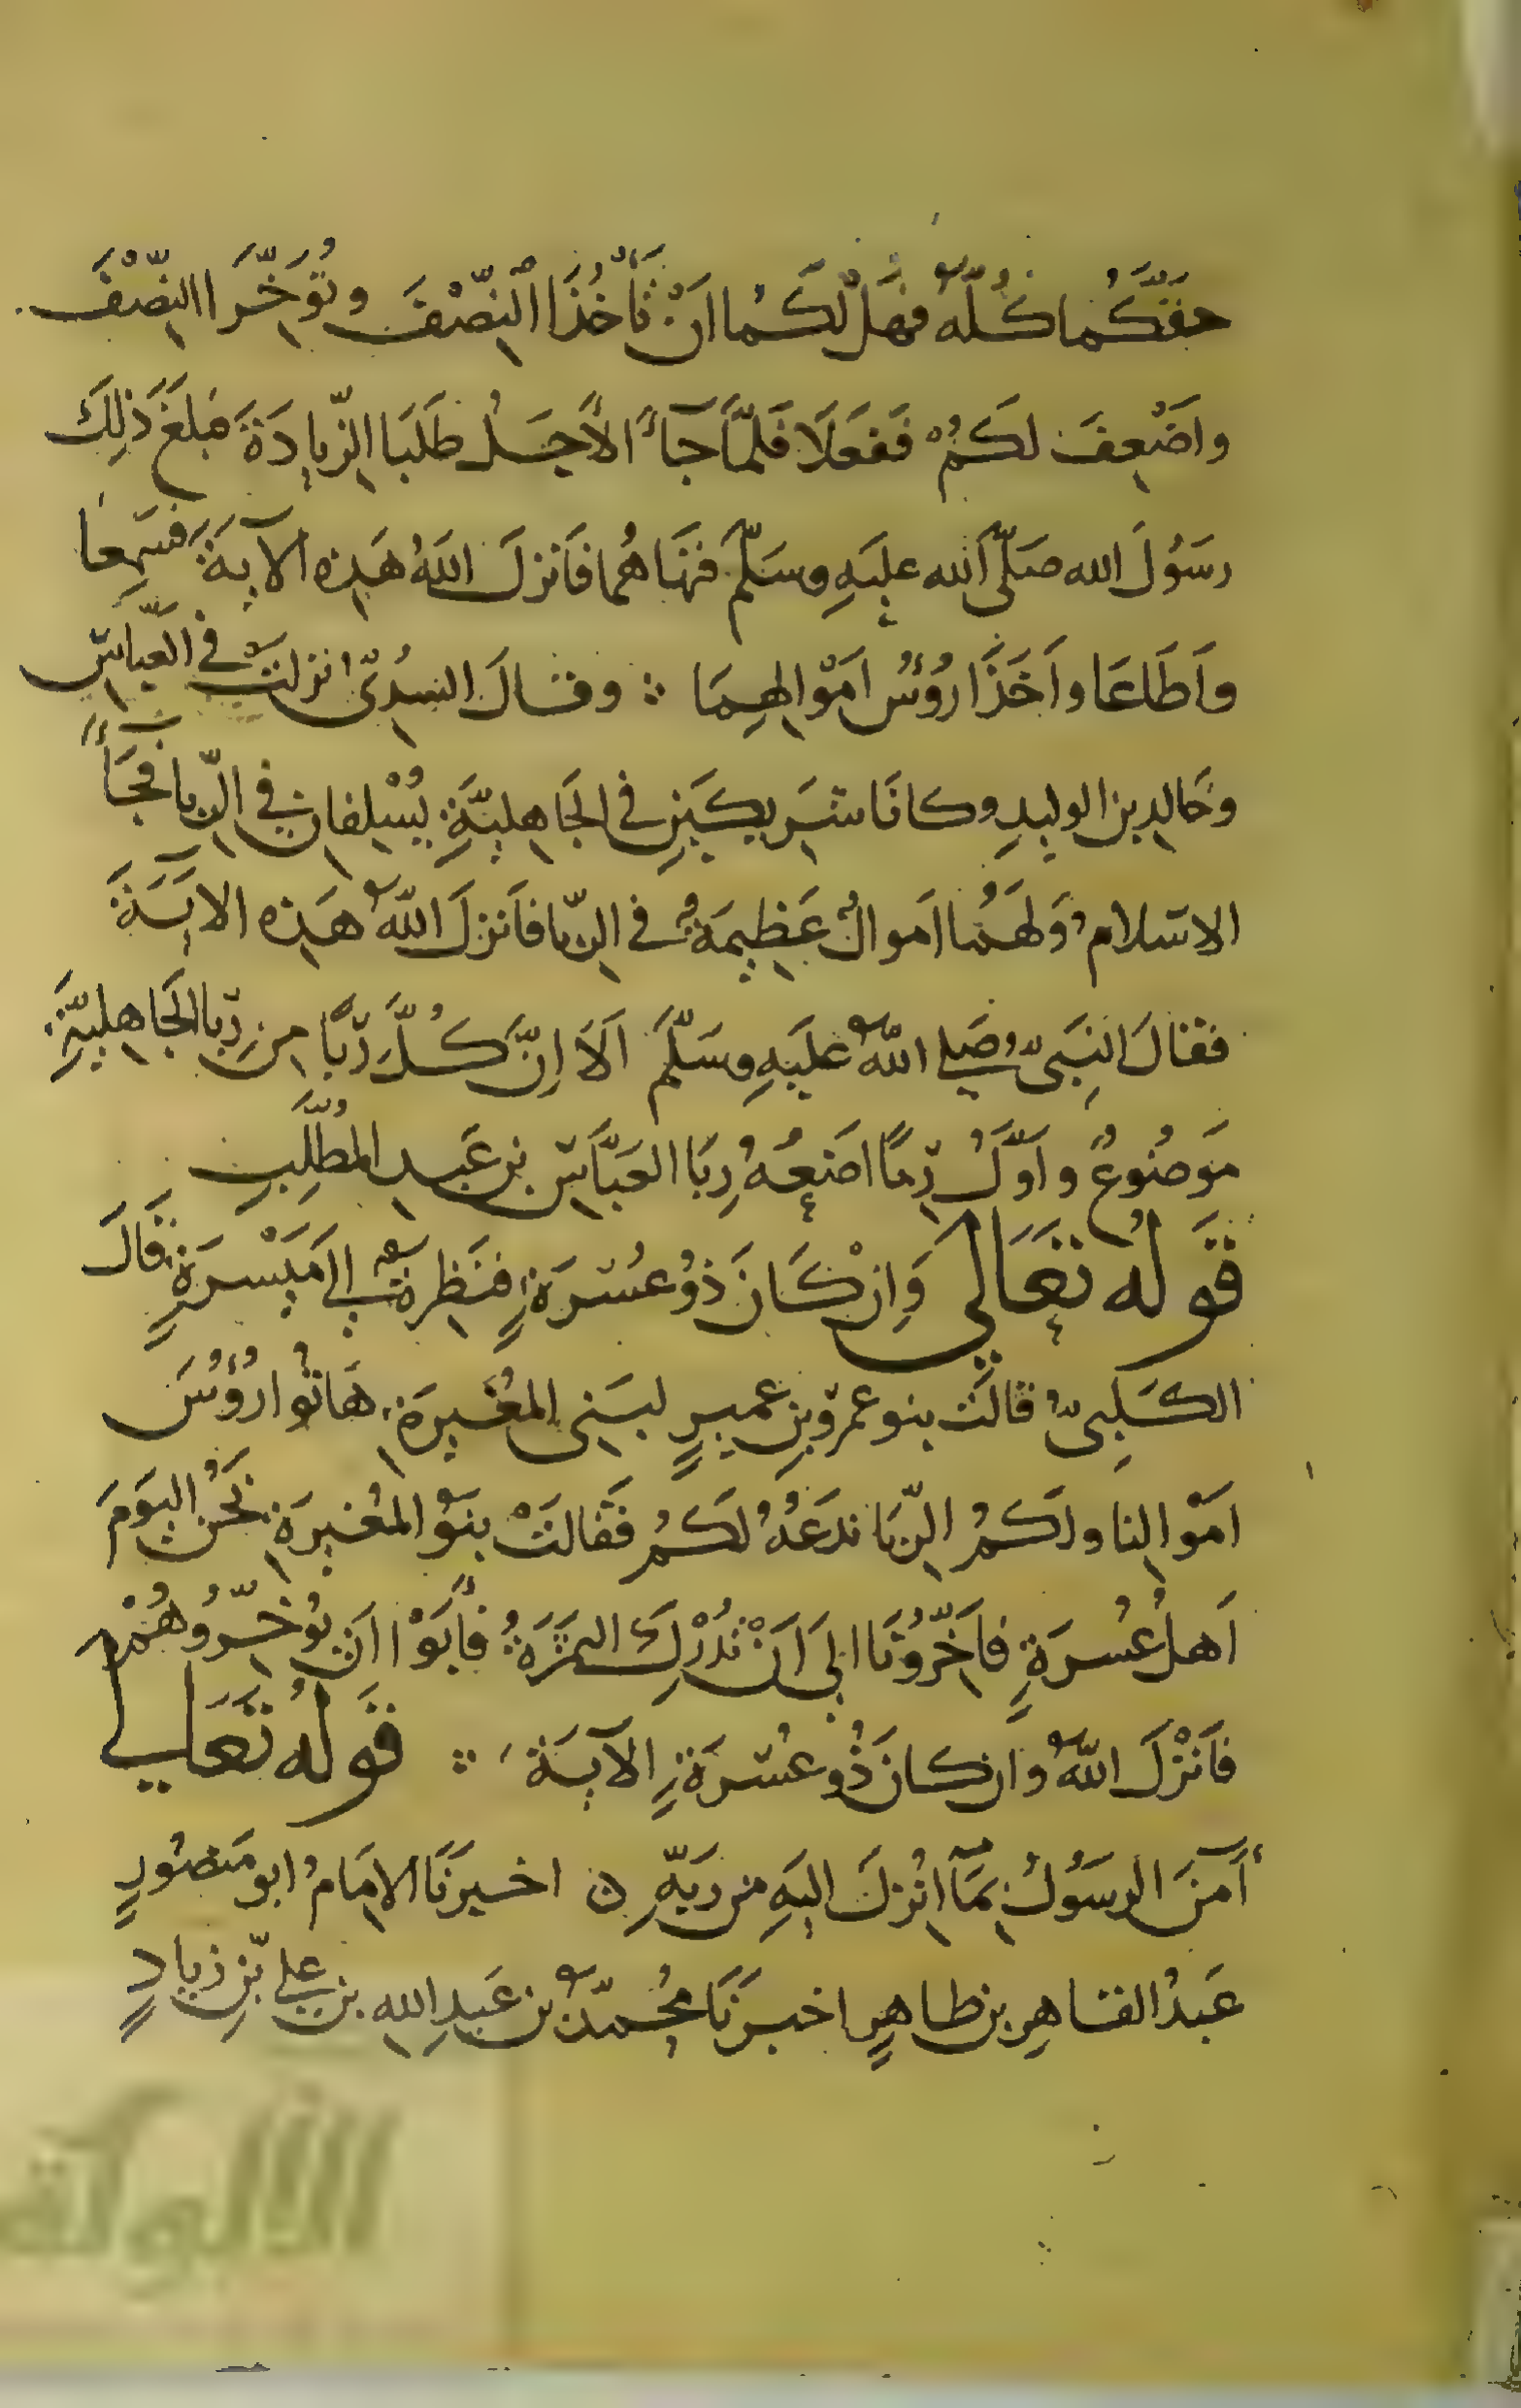 حقكما كُلَّهُ فهل لَّكُما اَنْ تَأْخُذَا النِّصْفَ وتُوَخِّرَا النِّصْفَ
واُضْعِفَ لكُمْ فَفَعَلَا فَلمَّا جَآءَ الأَجَلُ طَلَبَا الزِّيادَةَ فبَلَغَ ذٰلِكَ
رسُولَ الله صَلَّى الله عليَهِ وسَلَّم فنهَاهُما فَانزلَ اللهُ هَذِهِ الآيةَ فسَمِعَا
واَطَاعَا واَخَذَا رُؤُسَ اَمْوالِهِمَا وقالَ السُّدِّىُّ نزلَتْ فى العَبَّاسِ
وخَالِدِ بنِ الوليدِ وكانَا شَرِيكَيْنِ فى الجَاهِليَّةِ يُسْلِفانِ فِي الرِّبا فجَآءَ
الاسْلامُ وَلهُمَا اَموالٌ عَظِيمَةٌ في الرِّبا فاَنزلَ اللّهُ هَذِهِ الايَةَ
فقالَ النَبىُّ صَلى اللّهُ عليَهِ وسَلَّمَ اَلَا اِنَّ كُلَّ رِبًا مِنْ رِبَا الجَاهِليَّةِ
مَوضُوعٌ واَوَّلُ رِبًا اضَعُهُ رِبَا العَبَّاسِ بنِ عَبدِ المُطَّلِبِ
قَولُهُ تَعَالَى وَاِنْ كَانَ ذوُ عُسْرَةٍ فنَظِرةٌ اِلى مَيْسَرَةٍ قَالَ
الكَلبِىُّ قالَتْ بنو عمرو بنِ عميرٍ لبَنِى المُغِيرَةِ هَاتُوا رُؤُسَ
امْوالِنا ولكُمُ الرِّبَا نَدَعُهُ لكُمْ فَقَالَتْ بنوُ المُغيرَةِ نَحْنُ اليوَمَ
اَهلُ عُسرَةٍ فاَخِّرُونَا الى اَنْ تُدْرِكَ الثمَرَةُ فأَبَوْا اَنْ يُؤخِّرُوهُمْ
فاَنْزَلَ اللّهُ وَان كانَ ذُو عُسْرَةٍ الآيَةَ قولُهُ تَعَالى
آمَنَ الرسَوُلُ بِمَآ اُنْزِلَ اليَهِ من رَبِّهِ ن اخبرنَا الامَامُ ابو مَنصُورٍ
عَبدُ القاهِرِ بن طاهِرٍ اخبرنَا مُحمَّدُ بن عَبدِ الله بن عليِّ بنِ زيادٍ
الألوكة